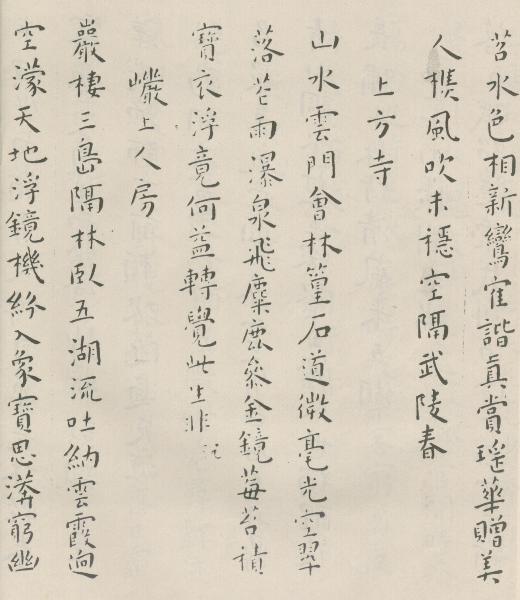 苕水色相新鸞隺諧真賞瑤華贈美
人樵風吹未穩空隔武陵春
上方寺
山水雲門會林篁石道微毫光空翠
落花雨瀑泉飛麋鹿參金鏡莓苔積
寶衣浮竟何益轉覺此生非
巘上人房
巖棲三島隔林臥五湖流吐納雲霞迥
空濛天地浮鏡機紛入象寶思漭窮幽